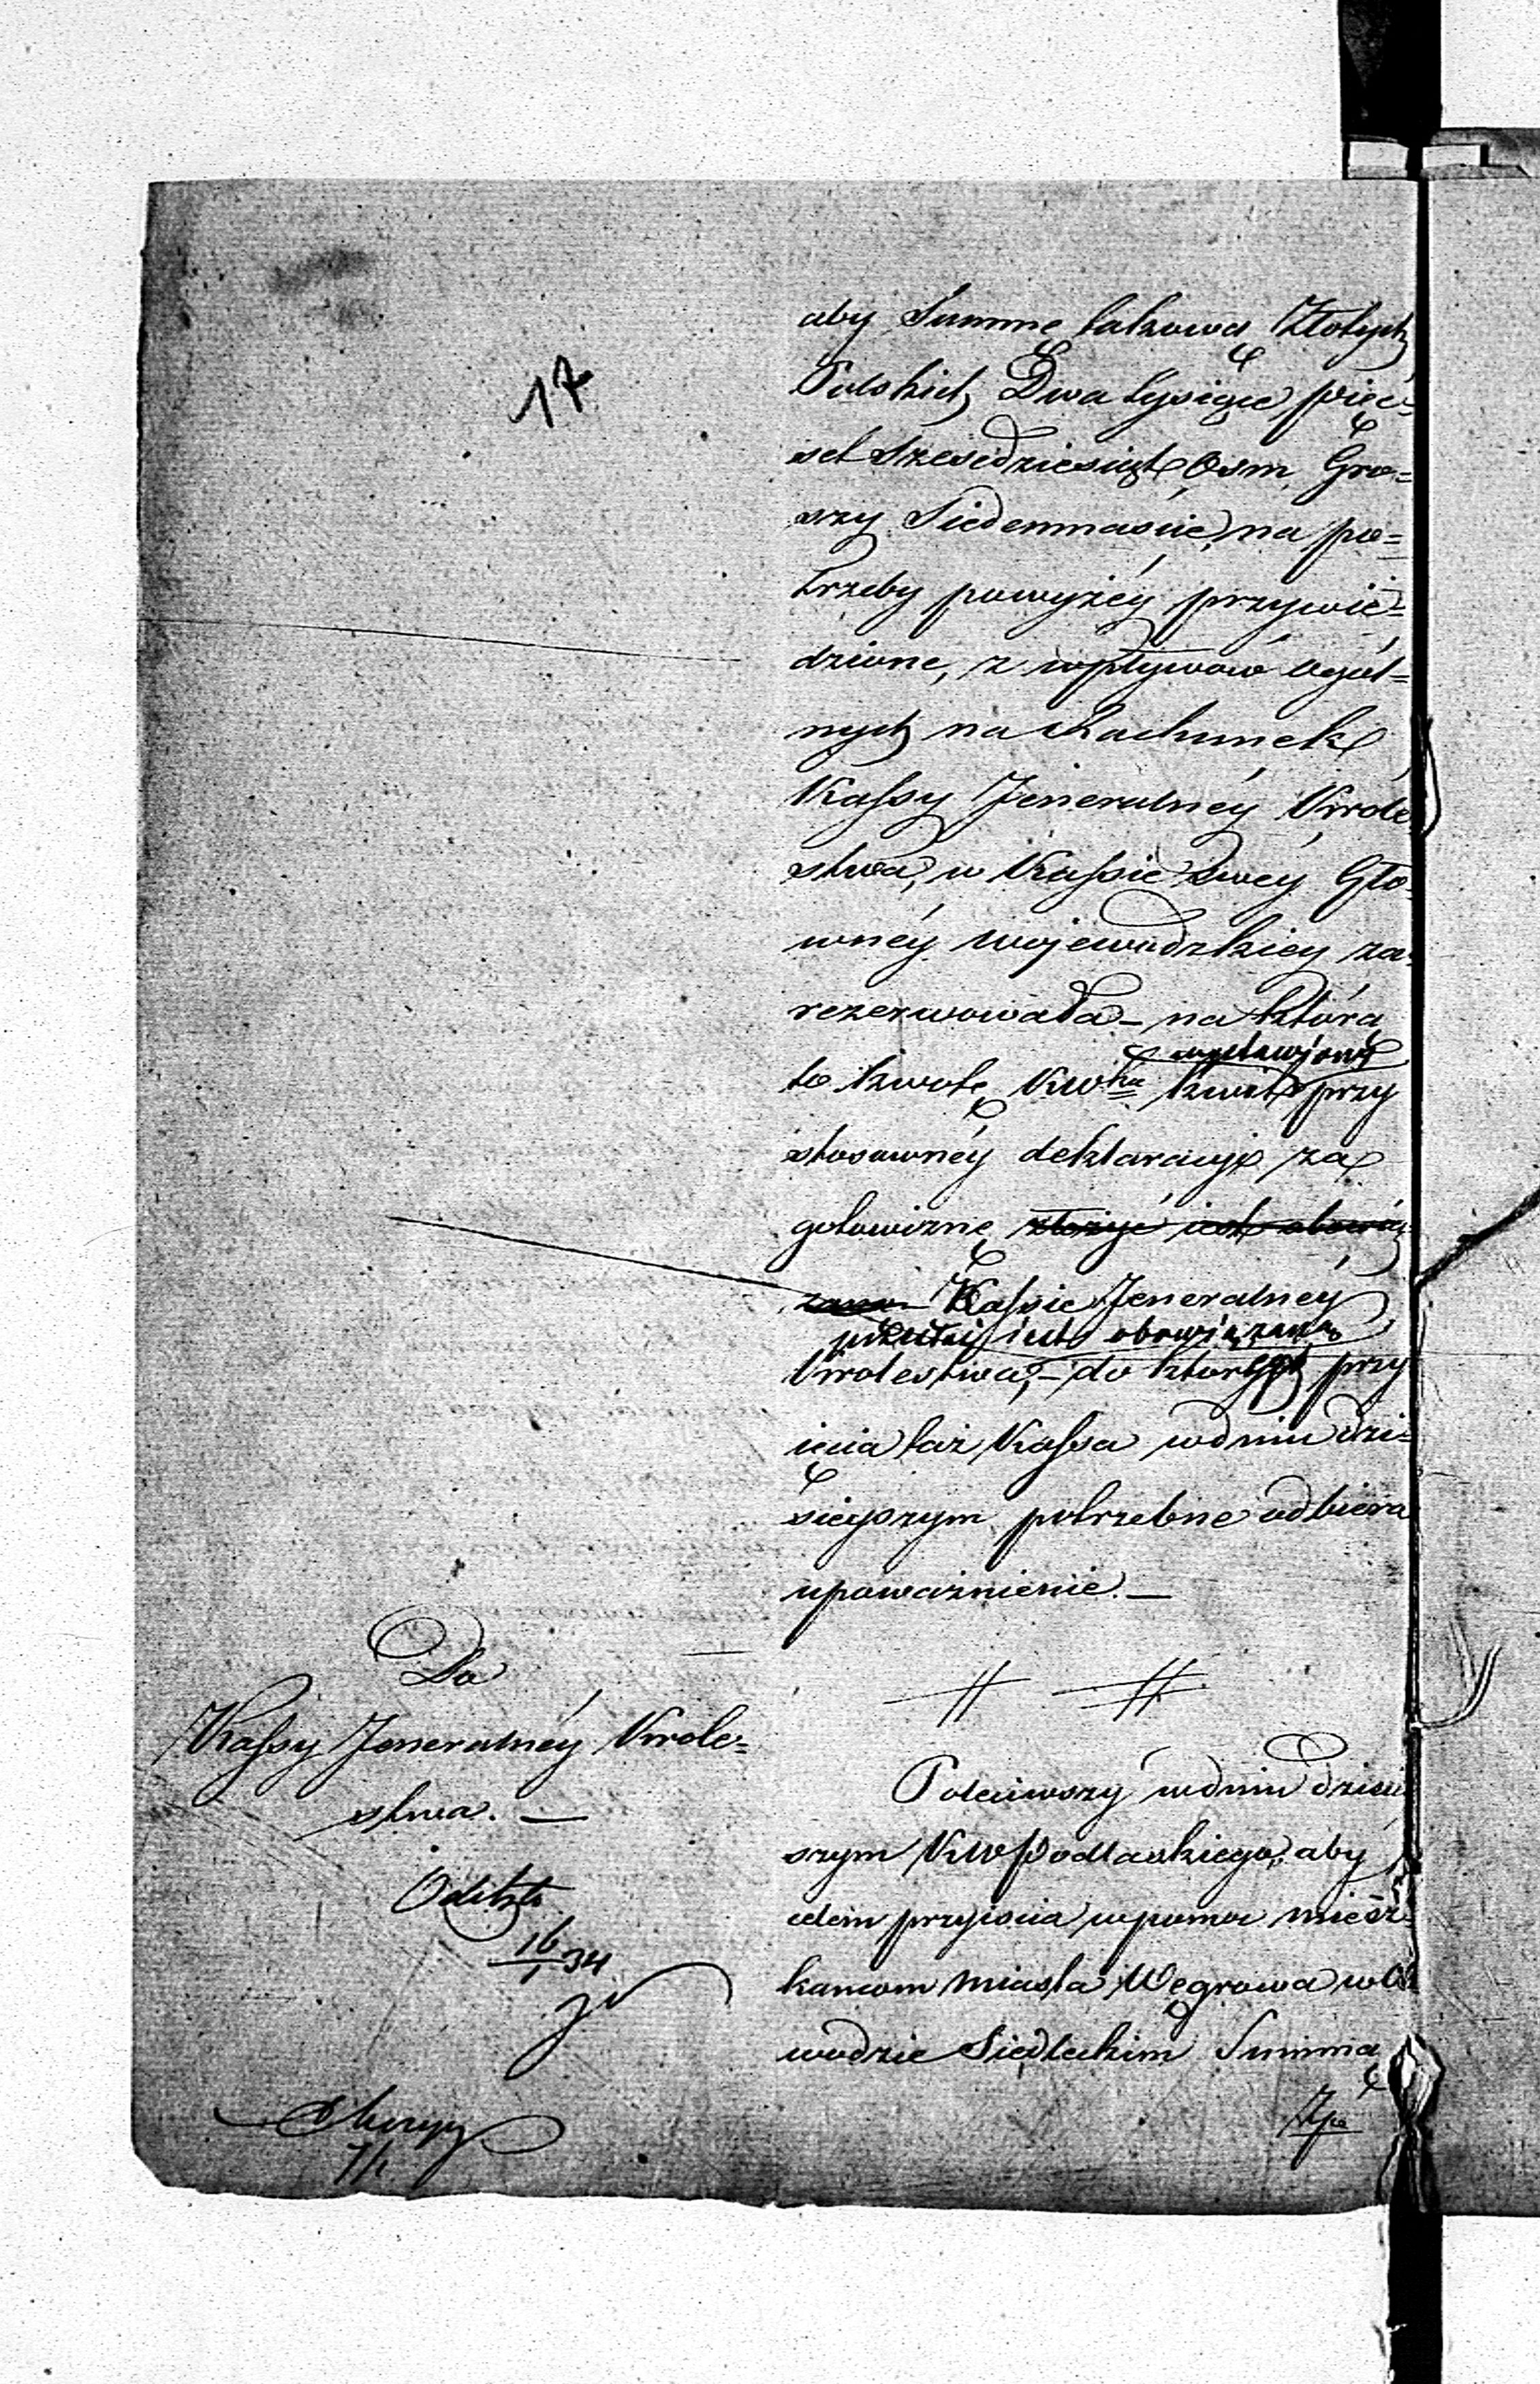 17
aby Summę takową Złotych
Polskich Dwa tysiące pięć=
set sześćdziesiąt Osm, Gro=
szy Siedemnaście, na po=
trzeby powyżéy przywie=
dzione, z wpływów ogól=
nych na Rachunek
Kassy Jeneralnéy Króle
stwa, w Kassie swéy Głó=
wnéy Wojewodzkiey za=
rezerwowała – na którą
wystawiony
to kwotę KWka kwit przy
stosownéy deklaracyi za
gotowiznę złożyć iest obowią
zana – Kassie Jeneralnéy
przesłać iest obowiązana
Królestwa, – do których przy
ięcia taż Kassa w dniu dzi=
sieyszym potrzebne odbiera
upoważnienie. –
Do
Kassy Jeneralnéy Króle=
stwa. –
16/1 34
Poleciwszy w dniu dzisiey
szym KWPodlaskiego, aby
celem przyiścia w pomoc miesz
kańcom miasta Węgrowa w Ob
wodzie Siedleckim Summa
7/1